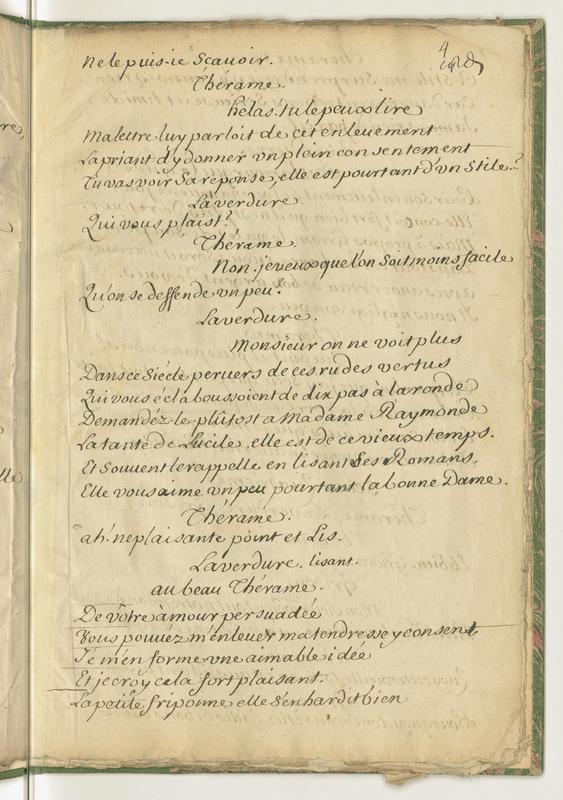 4
Ne le puis-ie Sçauoir.
Thérame.
helas! tu le peux lire
Ma lettre luy parloit de cet enleuement
La priant d'y donner vn plein consentement
Tu vas voir Sa réponse, elle est pourtant d'vn Stile..?
Laverdure
Qui vous plaist?
Thérame.
Non. je veux que l'on Soit moins facile
Qu'on se deffende vn peu.
Laverdure.
Monsieur on ne voit plus
Dans ce Siécle peruers de ces rudes vertus
Qui vous éclaboussoient de dix pas à la ronde
Demandéz-le plûtost a Madame Raymonde
La tante de Lucile, elle est de ce vieux temps.
Et Souuent le rappelle en lisant Ses Romans.
Elle vous aime vn peu pourtant la bonne Dame.
Thérame.
ah! ne plaisante point et Lis.
Laverdure. lisant.
au beau Thérame.
De vôtre amour persuadée
Vous pouuez m'enleuer ma tendresse y consent
Je m'en forme vne aimable idée
Et je croy cela fort plaisant.
La petite friponne elle S'enhardit bien